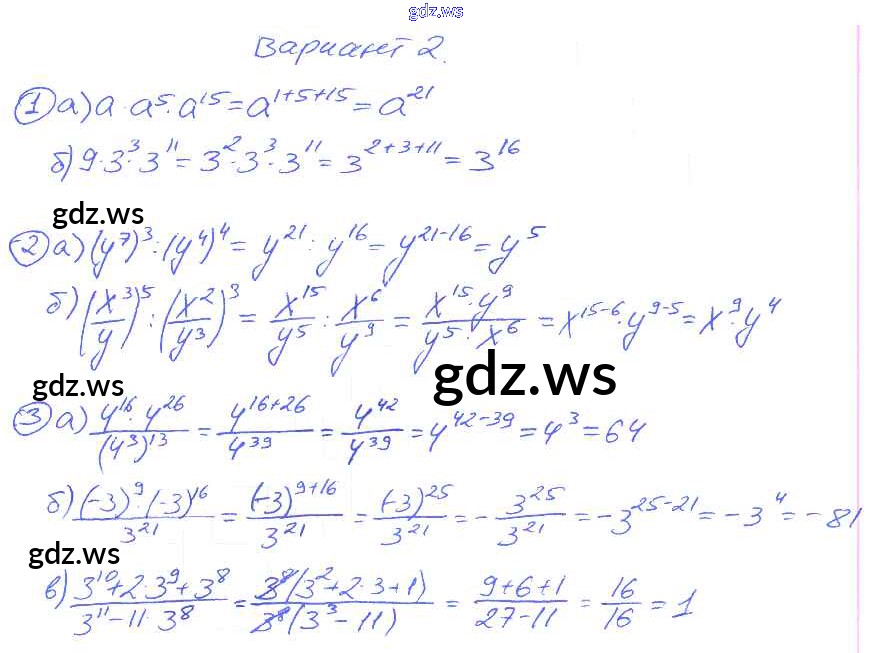 gdz.ws
Вариант 2.
① а) a · a⁵ · a¹⁵ = a¹⁺⁵⁺¹⁵ = a²¹
б) 9 · 3³ · 3¹¹ = 3² · 3³ · 3¹¹ = 3²⁺³⁺¹¹ = 3¹⁶
gdz.ws
② а) (y⁷)³ : (y⁴)⁴ = y²¹ : y¹⁶ = y²¹⁻¹⁶ = y⁵
б) (x³/y)⁵ : (x²/y³)³ = x¹⁵/y⁵ : x⁶/y⁹ = x¹⁵ · y⁹/y⁵ · x⁶ = x¹⁵⁻⁶ · y⁹⁻⁵ = x⁹ · y⁴
gdz.ws
gdz.ws
③ а) 4¹⁶ · 4²⁶/(4³)¹³ = 4¹⁶⁺²⁶/4³⁹ = 4⁴²/4³⁹ = 4⁴²⁻³⁹ = 4³ = 64
б) (-3)⁹ · (-3)¹⁶/3²¹ = (-3)⁹⁺¹⁶/3²¹ = (-3)²⁵/3²¹ = -3²⁵/3²¹ = -3²⁵⁻²¹ = -3⁴ = -81
gdz.ws
в) 3¹⁰ + 2 · 3⁹ + 3⁸/3¹¹ - 11 · 3⁸ = 3⁸(3² + 2 · 3 + 1)/3⁸(3³ - 11) = 9 + 6 + 1/27 - 11 = 16/16 = 1